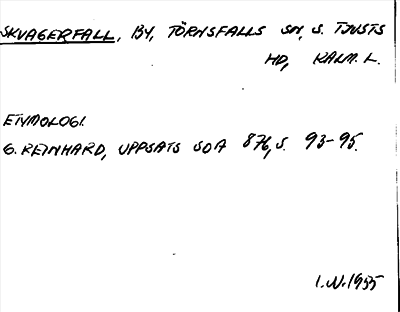 SKVAGERFALL, BY, TÖRNSFALLS SN, S. TJUSTS
HD, KALM. L.
ETYMOLOGI.
G. REINHARD, UPPSATS SOA 876, S. 93-95.
I.W. 1955